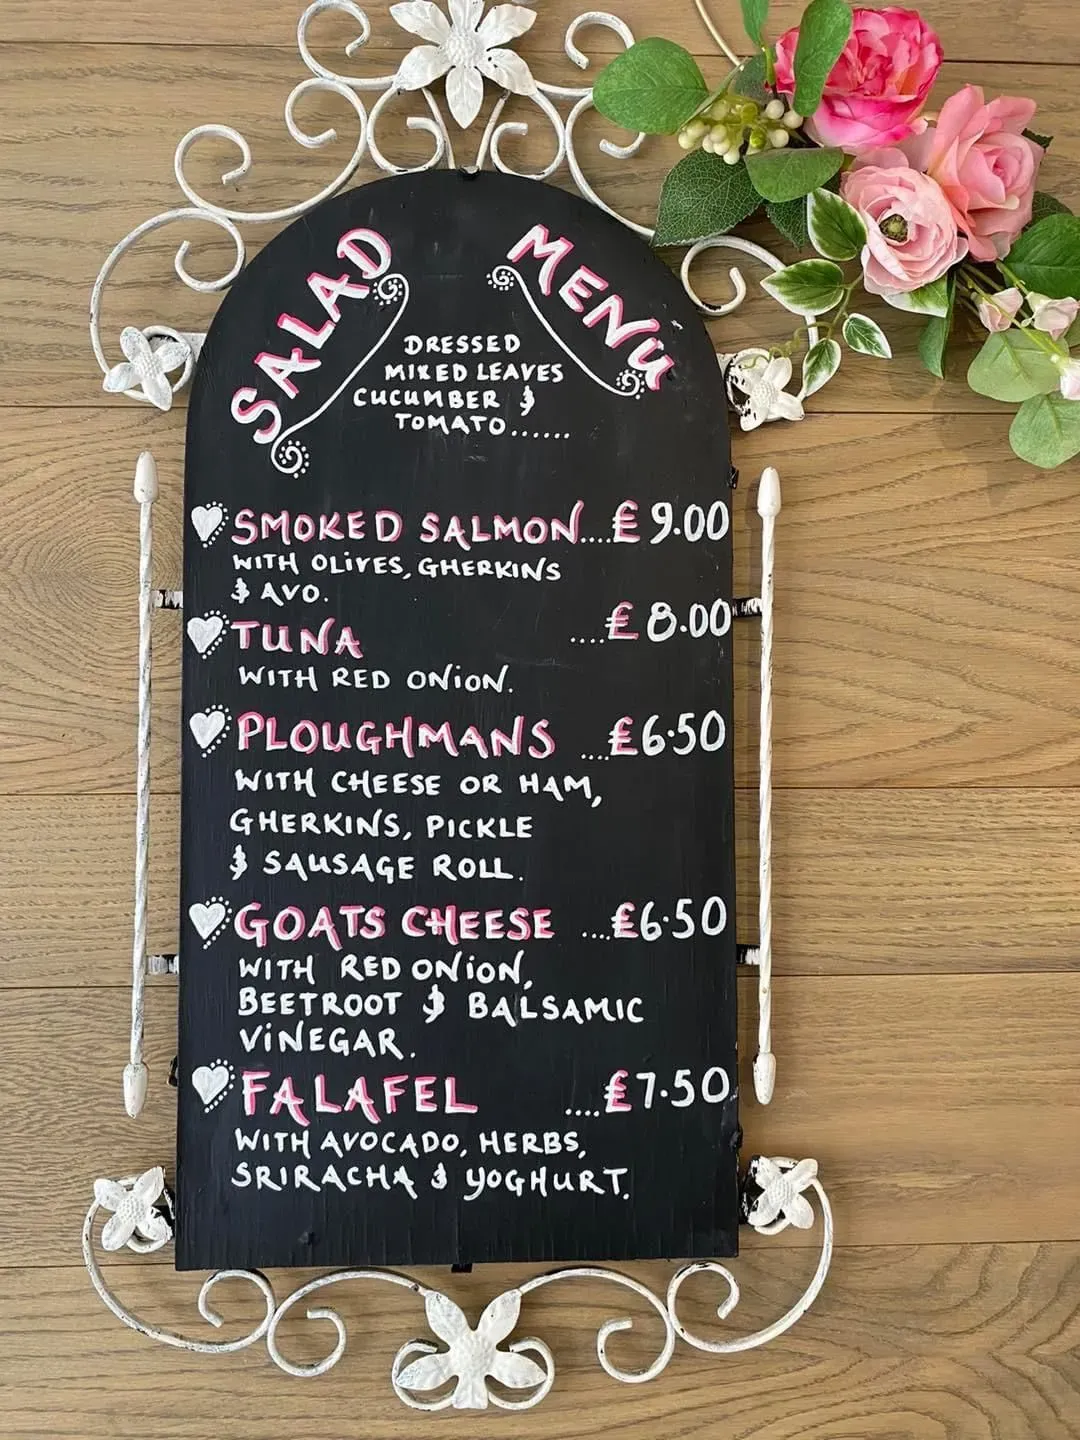 SALAD MENU
DRESSED
MIXED LEAVES
CUCUMBER &
TOMATO......
SMOKED SALMON....£9.00
WITH OLIVES, GHERKINS
& AVO.
TUNA ....£8.00
WITH RED ONION.
PLOUGHMANS ....£6.50
WITH CHEESE OR HAM,
GHERKINS, PICKLE
& SAUSAGE ROLL.
GOATS CHEESE ....£6.50
WITH RED ONION,
BEETROOT & BALSAMIC
VINEGAR.
FALAFEL ....£7.50
WITH AVOCADO, HERBS,
SRIRACHA & YOGHURT.